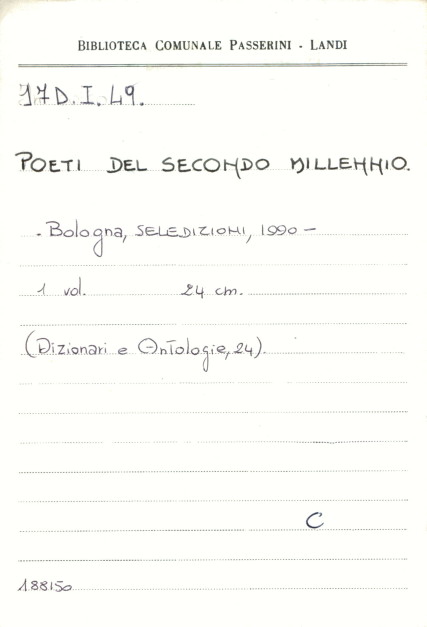 BIBLIOTECA COMUNALE PASSERINI - LANDI
17D.I.49.
POETI DEL SECONDO MILLENNIO.
- Bologna, SELEDIZIONI, 1990 -
1 vol. 24 cm.
(Dizionari e Antologie, 24).
C
188150